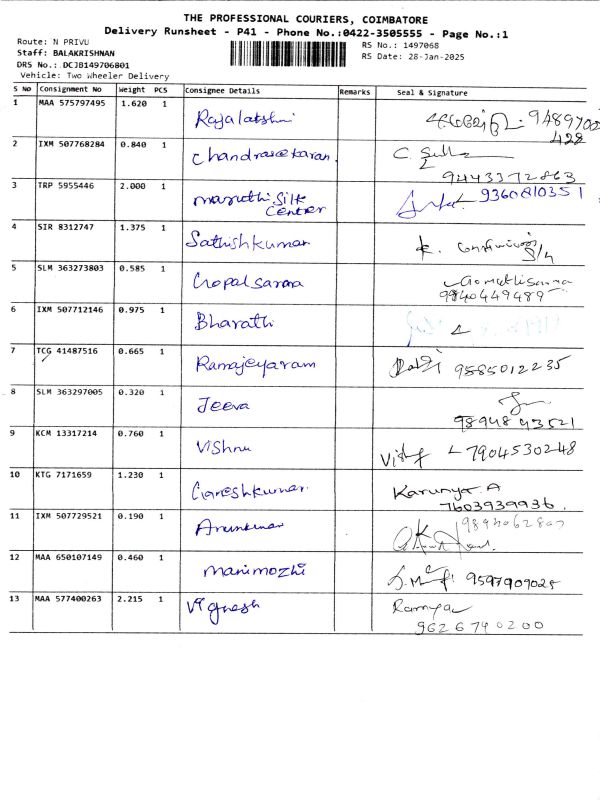 THE PROFESSIONAL COURIERS, COIMBATORE
Delivery Runsheet - P41 - Phone No.:0422-3505555 - Page No.:1
Route: N PRIVU
Staff: BALAKRISHNAN
DRS No.:.DCJB149706801
Vehicle: Two Wheeler Delivery
RS No.: 1497068
RS Date: 28-Jan-2025
S No Consignment No Weight PCS Consignee Details Remarks Seal & Signature
1 MAA 575797495 1.620 1 Rajalakshmi
2 IXM 507768284 0.840 1 Chandrasekaran. 9443372863
3 TRP 5955446 2.000 1 Maruthi Silk Center 9360810351
4 SIR 8312747 1.375 1 Sathishkumar
5 SLM 363273803 0.585 1 Gopal Sarma Gomathi Sarma
9840449489
6 IXM 507712146 0.975 1 Bharathi
7 TCG 41487516 0.665 1 Ramajeyaram 9585012235
8 SLM 363297005 0.320 1 Jeeva 9894843521
9 KCM 13317214 0.760 1 Vishnu 7904530248
10 KTG 7171659 1.230 1 Ganeshkumar Karunya. A
7603939936.
11 IXM 507729521 0.190 1 Arunkumar
12 MAA 650107149 0.460 1 Manimozhi 9597909025
13 MAA 577400263 2.215 1 Vignesh Ramya
9626740200